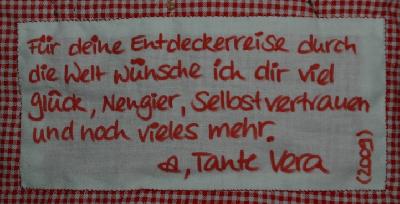 Für deine Entdeckerreise durch
die Welt wünsche ich dir viel
glück, Neugier, Selbstvertrauen
und noch vieles mehr.
♡, Tante Vera
(2009)